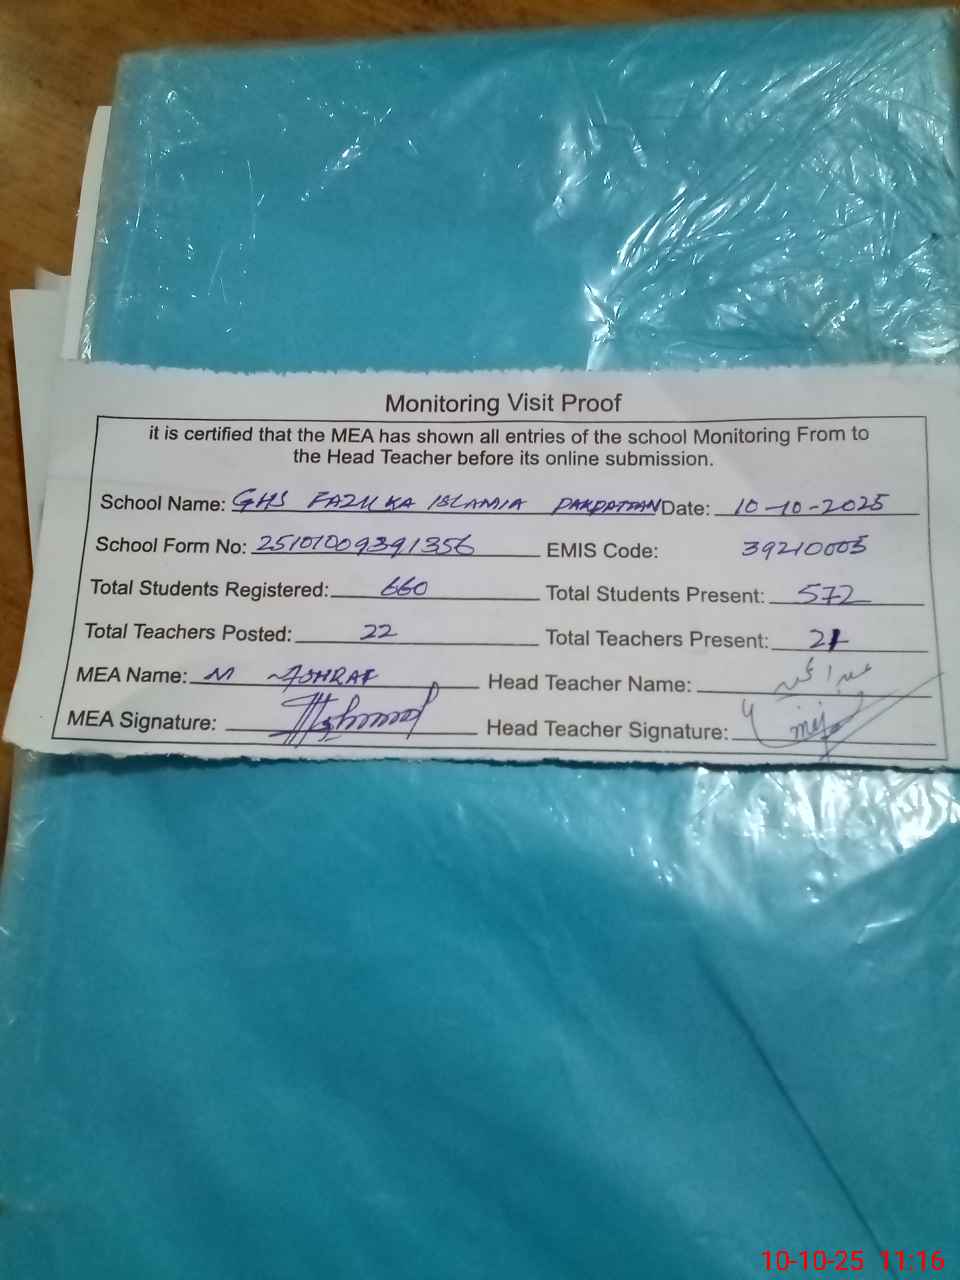 Monitoring Visit Proof
it is certified that the MEA has shown all entries of the school Monitoring From to
the Head Teacher before its online submission.
School Name: GHS FAZILKA ISLAMIA PAKPATTAN Date: 10-10-2025
School Form No: 25101009391356 EMIS Code: 39210005
Total Students Registered: 660 Total Students Present: 572
Total Teachers Posted: 22 Total Teachers Present: 21
MEA Name: M ASHRAF Head Teacher Name:
MEA Signature: Head Teacher Signature:
10-10-25 11:16